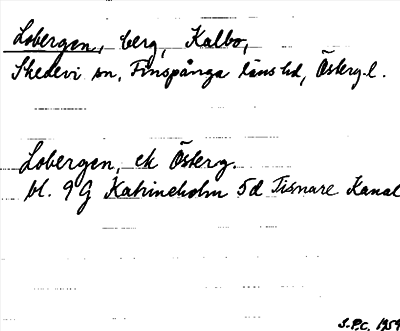 Lobergen, berg, Kalbo,
Skedevi sn, Finspånga läns hd, Österg. l.
Lobergen, ek Österg.
bl. 9 G Katrineholm 5d Tisnare Kanal
S.P.C. 1959